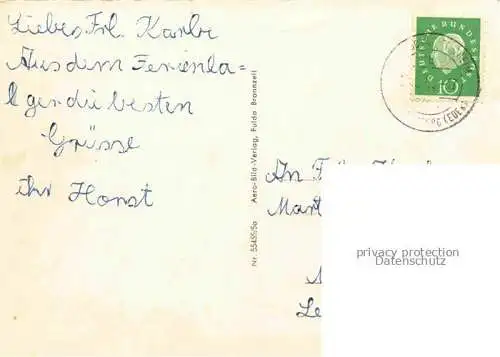 Liebes Frl. Karbe
Aus dem Ferienla=
ger die besten
Grüsse
ihr Horst
Nr. 55455/5a Aero-Bild-Verlag, Fulda Bronnzell
DEUTSCHE BUNDESPOST
10
An
Mart
Le
privacy protection
Datenschutz